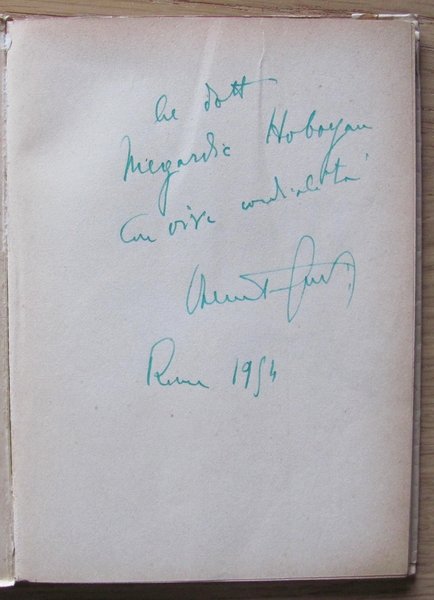 al dott
Megardic Hoboyan
Con viva cordialità
Roma 1954